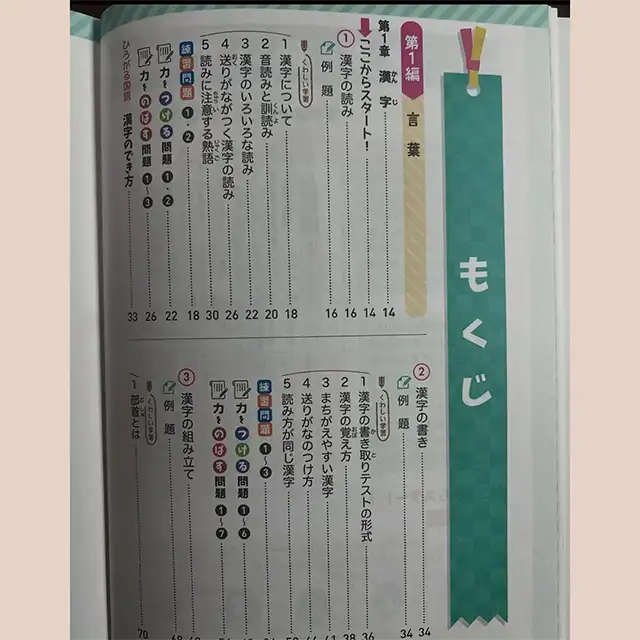 もくじ
第1編 言葉
第1章 漢字 14
ここからスタート! 14
① 漢字の読み 16
例題 16
くわしい学習
1 漢字について 18
2 音読みと訓読み 20
3 漢字のいろいろな読み 22
4 送りがながつく漢字の読み 26
5 読みに注意する熟語 30
練習問題 1・2 18
力をつける問題 1・2 22
力をのばす問題 1〜3 26
ひろがる国語 漢字のでき方 33
② 漢字の書き 34
例題 34
くわしい学習
1 漢字の書き取りテストの形式 36
2 漢字の覚え方 38
3 まちがえやすい漢字 41
4 送りがなのつけ方
5 読み方が同じ漢字
練習問題 1〜3
力をつける問題 1〜6
力をのばす問題 1〜7
③ 漢字の組み立て
例題
くわしい学習
1 部首とは 70